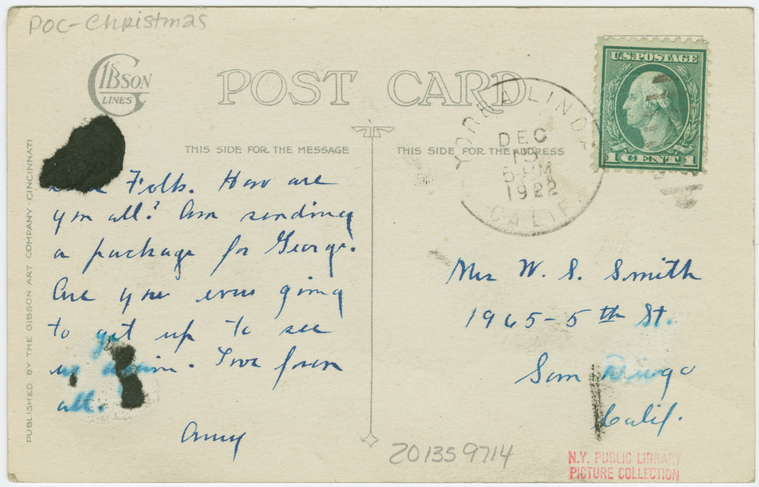 POC-Christmas
GIBSON
LINES
POST CARD
THIS SIDE FOR THE MESSAGE
THIS SIDE FOR THE ADDRESS
PUBLISHED BY THE GIBSON ART COMPANY, CINCINNATI
U.S. POSTAGE
1 CENT 1
YORBA LINDA
DEC
5 PM
1922
CALIF.
Folks. How are
you all? Am sending
a package for George.
Are you ever going
to get up to see
us again. Love from
all.
Amy
Mrs W. S. Smith
1965-5th St.
San Diego
Calif.
201359714
N.Y. PUBLIC LIBRARY
PICTURE COLLECTION